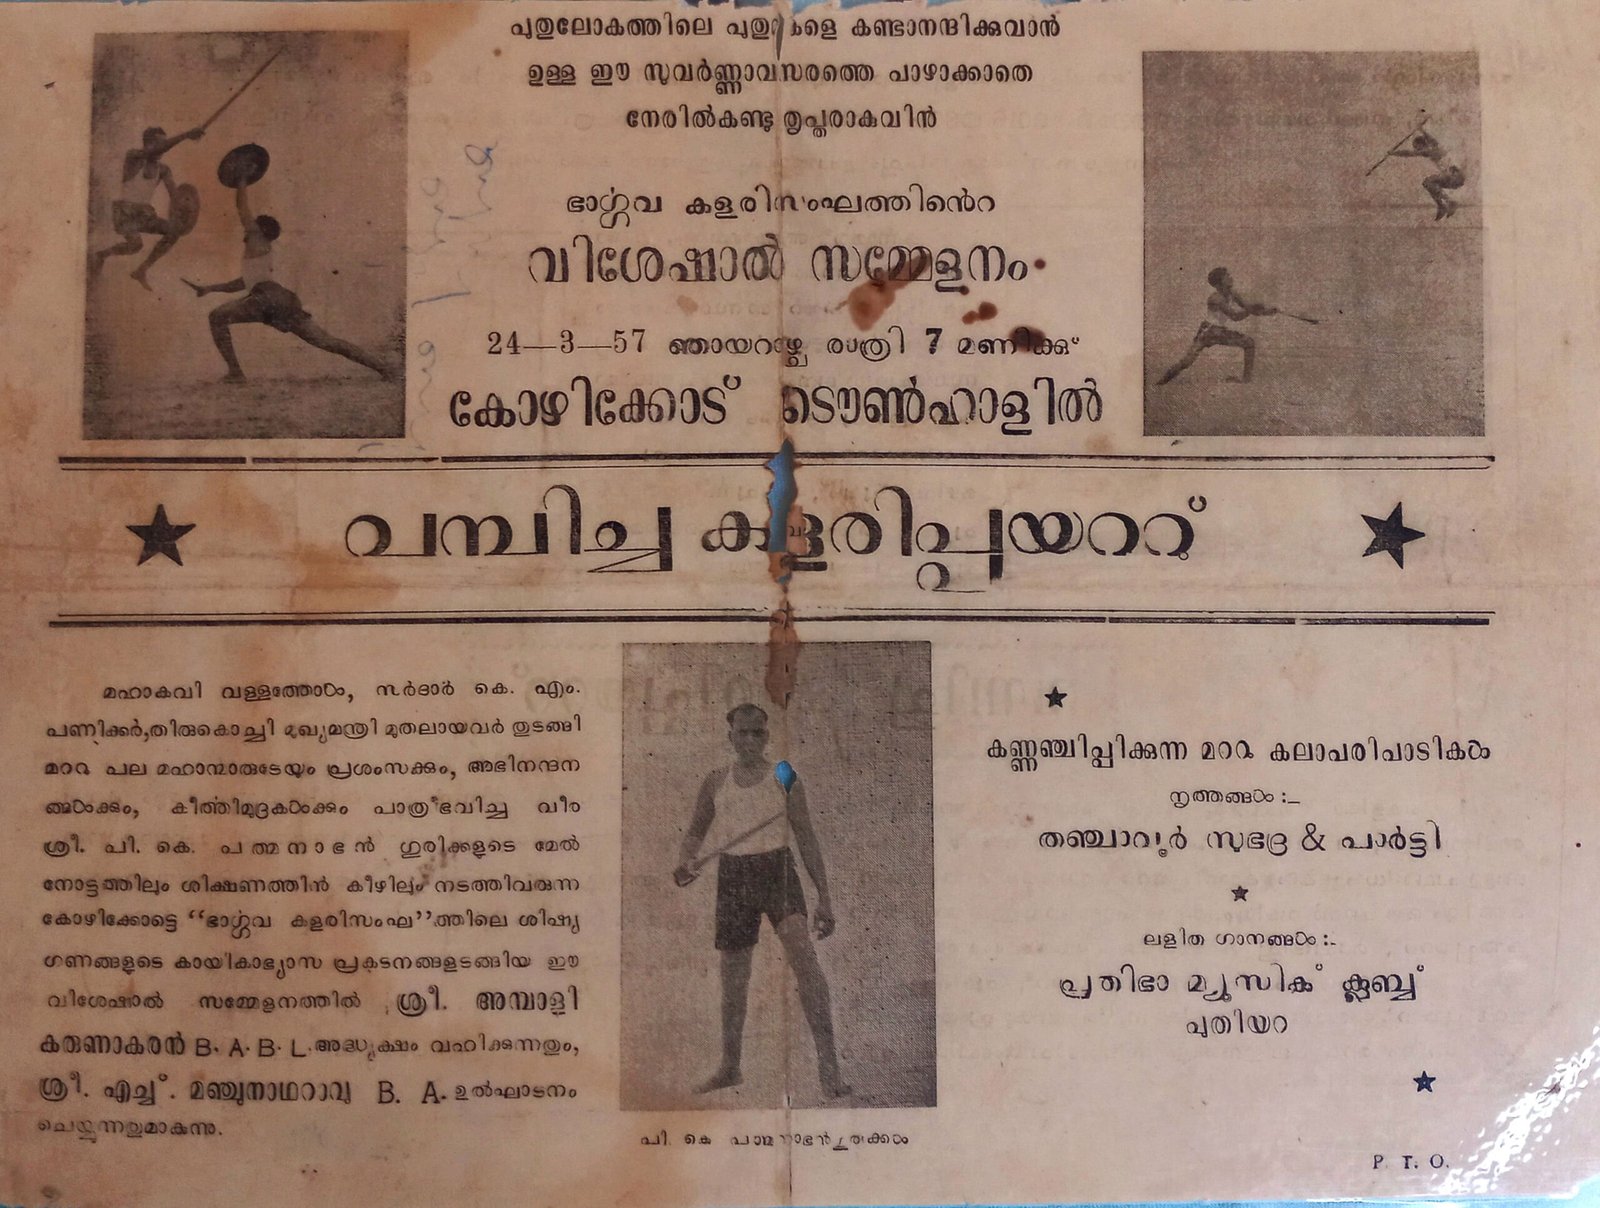 പുതുലോകത്തിലെ പുതുമകളെ കണ്ടാനന്ദിക്കുവാൻ
ഉള്ള ഈ സുവർണ്ണാവസരത്തെ പാഴാക്കാതെ
നേരിൽകണ്ടു തൃപ്തരാകുവിൻ
ഭാർഗ്ഗവ കളരിസംഘത്തിൻെറ
വിശേഷാൽ സമ്മേളനം
24—3—57 ഞായറാഴ്ച രാത്രി 7 മണിക്കു്
കോഴിക്കോട് ടൌൺഹാളിൽ
വമ്പിച്ച കളരിപ്പയററ്
മഹാകവി വള്ളത്തോൾ, സർദാർ കെ. എം.
പണിക്കർ,തിരുകൊച്ചി മുഖ്യമന്ത്രി മുതലായവർ തുടങ്ങി
മററു പല മഹാന്മാരുടേയും പ്രശംസക്കും, അഭിനന്ദന
ങ്ങൾക്കും, കീർത്തിമുദ്രകൾക്കും പാത്രീഭവിച്ച വീര
ശ്രീ. പി. കെ. പത്മനാഭൻ ഗുരിക്കളുടെ മേൽ
നോട്ടത്തിലും ശിക്ഷണത്തിൻ കീഴിലും നടത്തിവരുന്ന
കോഴിക്കോട്ടെ “ഭാർഗ്ഗവ കളരിസംഘ”ത്തിലെ ശിഷ്യ
ഗണങ്ങളുടെ കായികാഭ്യാസ പ്രകടനങ്ങളടങ്ങിയ ഈ
വിശേഷാൽ സമ്മേളനത്തിൽ ശ്രീ. അമ്പാളി
കരുണാകരൻ B. A. B. L. അദ്ധ്യക്ഷം വഹിക്കുന്നതും,
ശ്രീ. എച്ച്. മഞ്ചുനാഥറാവു B. A. ഉൽഘാടനം
ചെയ്യുന്നതുമാകുന്നു.
പി. കെ
കണ്ണഞ്ചിപ്പിക്കുന്ന മററു കലാപരിപാടികൾ
നൃത്തങ്ങൾ :—
തഞ്ചാവൂർ സുഭദ്ര & പാർട്ടി
ലളിത ഗാനങ്ങൾ :-
പ്രതിഭാ മ്യൂസിക് ക്ലബ്ബ്
പുതിയറ
P. T. O.